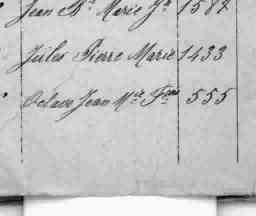 Jean Bte Marie Jh 1587
Jules Pierre Marie 1433
Octave Jean Mie Fçois 555